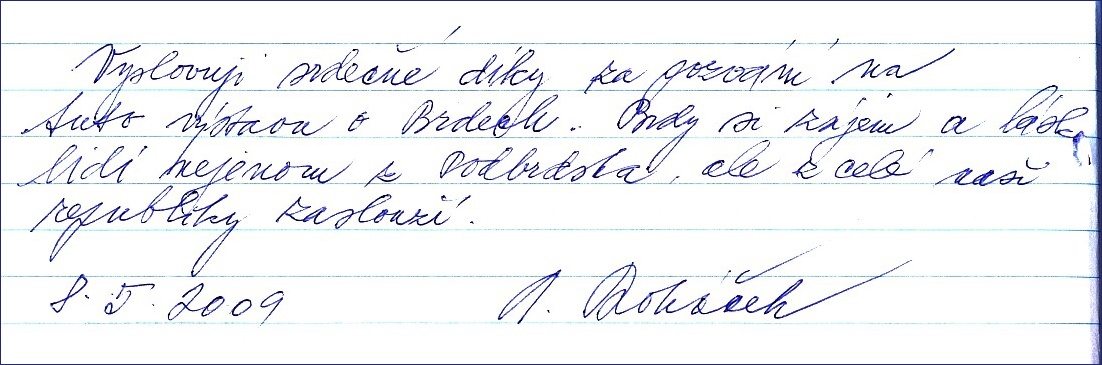 Vyslovuji srdečné díky za pozvání na
tuto výstavu o Brdech. Brdy si zájem a lásk
lidí nejenom z Podbrdska, ale z celé naší
republiky zaslouží.
8. 5. 2009